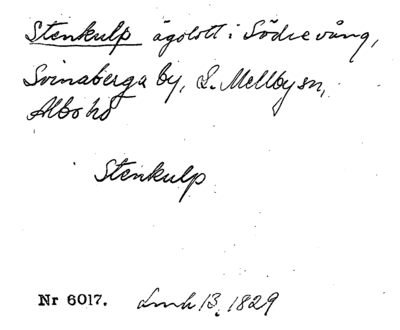 Stenkulp ägolott i Södre vång,
Svinaberga by, S. Mellby sn,
Albo hd
Stenkulp
Nr 6017. Lmh 13, 1829